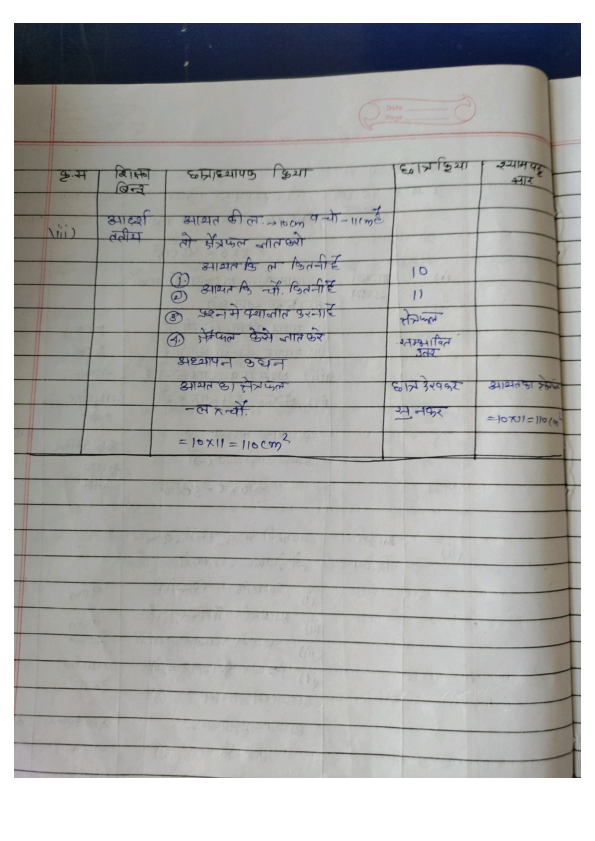 Date
Page
कृ.स शिक्षण छात्राध्यापक क्रिया छात्र क्रिया श्यामपट्ट
बिन्दु सार
(iii) आदर्श आयत की ल. → 10cm व चौ → 11cm है
तृतीय तो क्षेत्रफल ज्ञात करो
आयत कि ल कितनी है 10
① आयत कि चौ. कितनी है 11
②
③ प्रश्न मे क्या ज्ञात करना है क्षेत्रफल
④ क्षेत्रफल कैसे ज्ञात करे सम्भावित
उतर
अध्यापन कथन
आयत का क्षेत्रफल छात्र देखकर आयत का क्षेत्रफल
- ल x चौ. सुनकर = 10x11 = 110cm²
= 10x11 = 110cm²